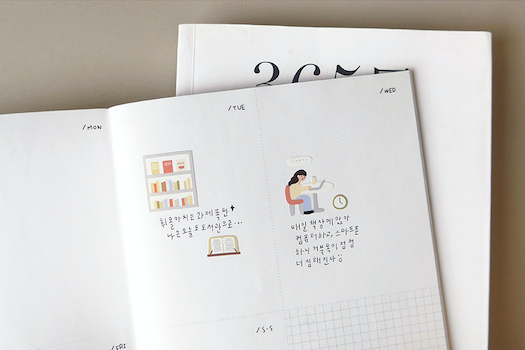 365
/MON
/TUE
/WED
휘몰아치는 과제폭탄
나는 오늘도 도서관으로...
매일 책상에 앉아
컴퓨터하고, 스마트폰
하니 거북목이 점점
더 심해진다
/FRI
/S·S